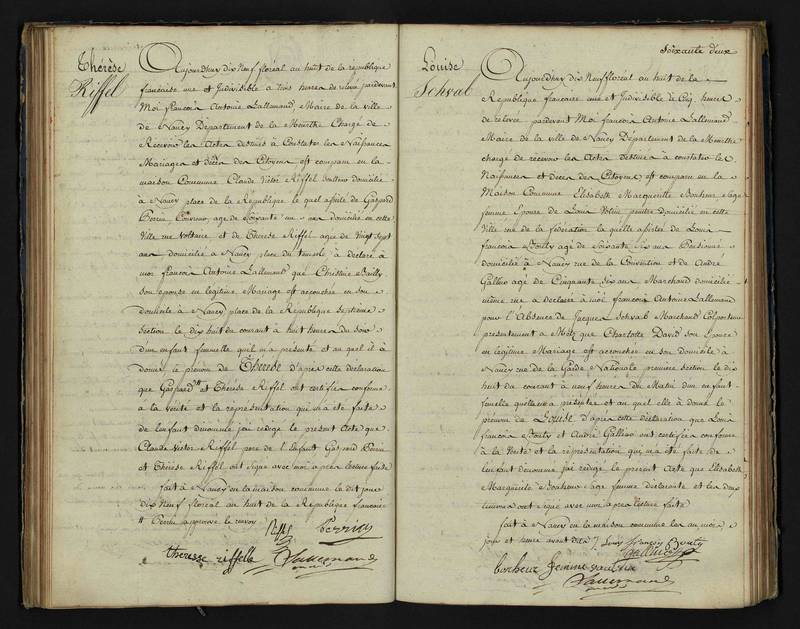 Thérèse
Riffel
Aujourdhuy dix Neuf floréal an huit de la republique
francaise une et Indivisible à trois heures de relevé pardevant
Moi françois Antoine Lallemand, Maire de la ville
de Nancy Département de la Meurthe Chargé de
Recevoir les Actes destinés à Constater les Naissances
Mariages et décès des Citoyens est comparu en la
maison Commune Claude Victor Riffel domicilié
à Nancy place de la République lequel assisté de Gaspard
Perrin agé de soixante un ans domicilié en cette
Ville rue Voltaire et de Thérèse Riffel agée de Vingt sept
ans domiciliée à Nancy place du temple à déclaré à
moi françois Antoine Lallemand que Christine Bailly
son épouse en légitime Mariage est accouchée en son
domicile à Nancy place de la République septieme
Section le dix huit du courant à huit heures du soir
d'un enfant femelle qu'il m'a présenté et au quel il à
donné le prénom de Thérèse d'après cette déclaration
que Gaspard et Thérèse Riffel ont certifiés conforme
à la vérité et la représentation qui m'a été faite
de l'enfant dénommé j'ai rédigé le présent Acte que
Claude Victor Riffel pere de l'Enfant Gaspard Perrin
et Thérèse Riffel ont signé avec moi après lecture faite
fait à Nancy en la maison commune le dit jour
dix Neuf floréal an huit de la République francaise
Perrin approuvé le renvoy
Riffel Perrin
theresse riffelle Lallemand
Soixante deux
Louise
Schvab
Aujourdhuy dix Neuf floréal an huit de la
République francaise une et Indivisible à Cinq heures
de relevée pardevant Moi françois Antoine Lallemand
Maire de la ville de Nancy Département de la Meurthe
chargé de recevoir les Actes destinés à constater les
Naissances et décès des Citoyens est comparu en la
Maison Commune Elisabeth Margueritte Bonheur sage
femme Epouse de Louis peintre domicilié en cette
Ville rue de la fédération la quelle assistée de Louis
francois Bouty agé de soixante six ans Pensionné
domicilié à Nancy rue de la Convention et de André
Gallino agé de Cinquante six ans Marchand domicilié
même rue à déclaré à moi francois Antoine Lallemand
pour l'Absence de Jacques Schvab Marchand Colporteur
presentement à Metz que Charlotte David son Epouse
en légitime Mariage est accouchée en son domicile à
Nancy rue de la Garde Nationale premiere section le dix
huit du courant à neuf heures du Matin d'un enfant
femelle qu'elle m'a présenté et au quel elle à donné le
prénom de Louise d'après cette déclaration que Louis
francois Bouty et André Gallino ont certifiés conforme
à la Vérité et la réprésentation qui m'a été faite de
l'enfant dénommé j'ai rédigé le présent Acte que Elisabeth
Marguerite Bonheur sage femme déclarante et les deux
témoins ont signé avec moi après lecture faite
fait à Nancy en la maison commune les an mois
jour et heure avant dits Louis françois Bouty
Gallino
bonheur femme
Lallemand